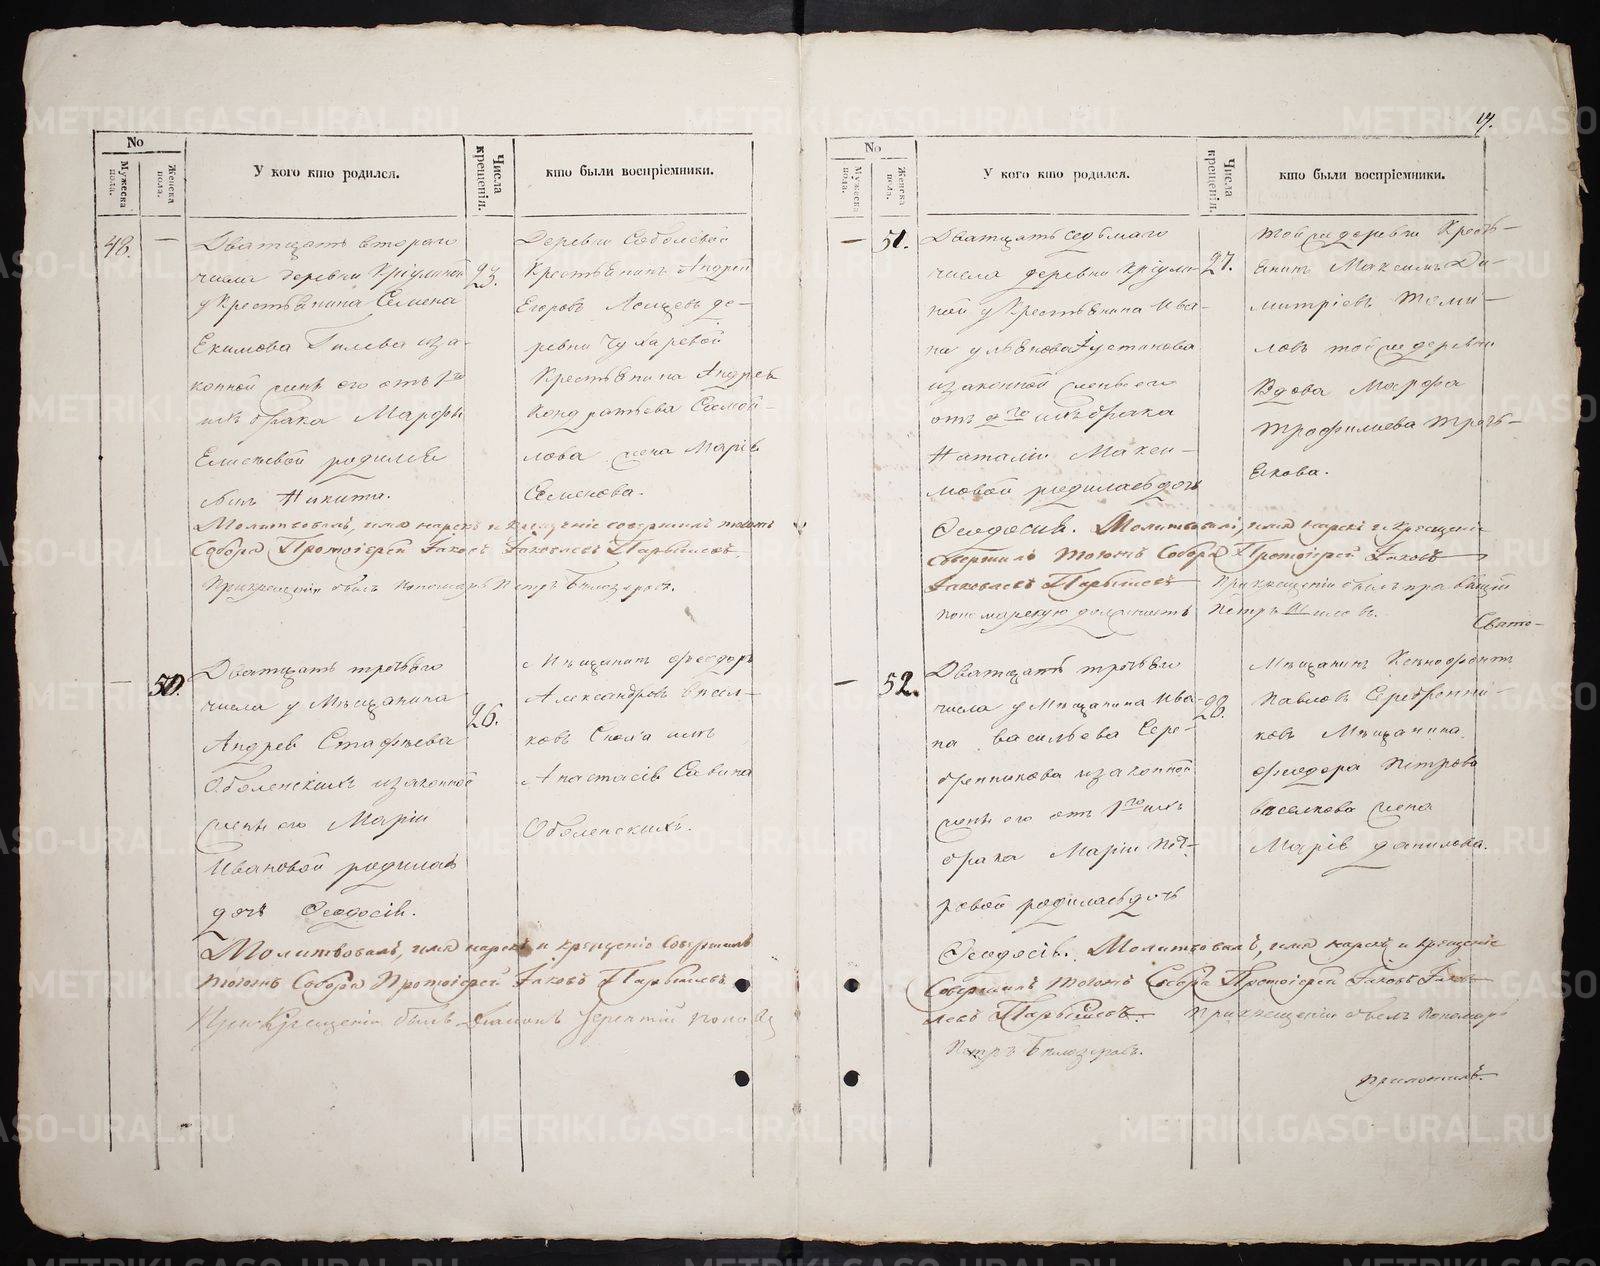 17.
No
Мужеска пола.
Женска пола.
У кого кто родился.
Числа крещенія.
кто были воспріемники.
48. —
Дватцать втораго
числа деревни Кріулиной
у Крестьянина Семена
Екимова Гилева иза-
конной жены его отъ 1го
имъ брака Марфы
Елисѣевой родился
сынъ Никита.
23.
Деревни Соболевой
Крестьянинъ Андрей
Егоровъ де-
ревни Чухаревой
Крестьянина Андрея
Кондратьева Самой-
лова жена Марія
Семенова.
Молитвовалъ, имя нарекъ и крещеніе совершилъ тогожъ
Собора Протоіерей Іаковъ Іаковлевъ Парышевъ.
При крещеніи былъ пономарь Петръ Белозеровъ.
— 50.
Дватцать третьяго
числа у Мѣщанина
Андрея Стафѣева
Оболенскихъ изаконной
жены его Маріи
Ивановой родилась
дочь Феодосія.
26.
Мѣщанинъ Феодоръ
Александровъ Васил-
ковъ
Анастасія Савина
Оболенскихъ.
Молитвовалъ, имя нарекъ и крещеніе Совершилъ
тогожъ Собора Протоіерей Іаковъ Парышевъ.
При крещеніи былъ Діаконъ Терентій Поповъ
No
Мужеска пола.
Женска пола.
У кого кто родился.
Числа крещенія.
кто были воспріемники.
— 51.
Дватцать седьмаго
числа деревни Кріули-
ной у Крестьянина Ива-
на Ульянова Устинова
изаконной жены его
отъ 2го имъ брака
Наталіи Макси-
мовой родилась дочь
Феодосия.
27.
той же деревни Кресть-
янинъ Максимъ Ди-
митріевъ Томи-
ловъ той же деревни
Вдова Марфа
Трофимова Треть-
якова.
Молитвовалъ, имя нарекъ и крещеніе
совершилъ тогожъ Собора Протоіерей Іаковъ
Іаковлевъ Парышевъ При крещеніи былъ правящій
пономарскую должность Петръ Шиловъ.
Свято-
— 52.
Дватцать третьяго
числа у Мѣщанина Ива-
на Васильева Сере-
бренникова изаконной
жены его отъ 1го имъ
брака Маріи Пет-
ровой родилась дочь
Феодосія.
28.
Мѣщанинъ Ксенофонтъ
Павловъ Серебренни-
ковъ Мѣщанина
Феодора Петрова
Василкова жена
Марія Данилова.
Молитвовалъ, имя нарекъ и крещеніе
Совершилъ тогожъ Собора Протоіерей Іаковъ Іаков-
левъ Парышевъ. При крещеніи былъ Пономарь
Петръ Белозеровъ.
приложилъ.
METRIKI.GASO-URAL.RU